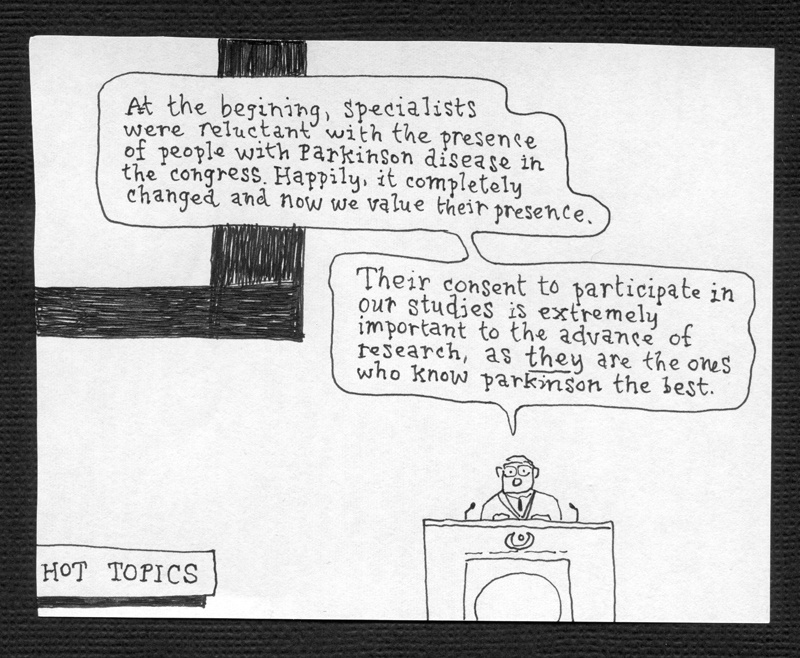 At the begining, specialists
were reluctant with the presence
of people with Parkinson disease in
the congress. Happily, it completely
changed and now we value their presence.
Their consent to participate in
our studies is extremely
important to the advance of
research, as they are the ones
who know parkinson the best.
HOT TOPICS